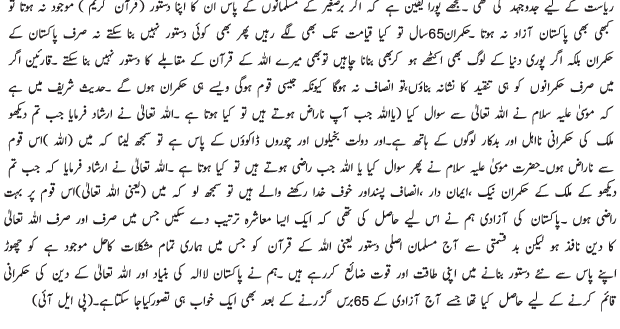 ریاست کے لیے جدوجہد کی تھی ۔مجھے پورا یقین ہے کہ اگر برصغیر کے مسلمانوں کے پاس ان کا اپنا دستور (قرآن کریم ) موجود نہ ہوتا تو
کبھی بھی پاکستان آزاد نہ ہوتا ۔حکمران65سال تو کیا قیامت تک بھی لگے رہیں پھر بھی کوئی دستور نہیں بنا سکتے نہ صرف پاکستان کے
حکمران بلکہ اگر پوری دنیا کے لوگ بھی اکٹھے ہو کربھی بنانا چاہیں توبھی میرے اللہ کے قرآن کے مقابلے کا دستور نہیں بنا سکتے ۔قارئین اگر
میں صرف حکمرانوں کو ہی تنقید کا نشانہ بناؤں،تو انصاف نہ ہوگا کیونکہ جیسی قوم ہوگی ویسے ہی حکمران ہوں گے ۔حدیث شریف میں ہے
کہ موسیٰ علیہ سلام نے اللہ تعالیٰ سے سوال کیا (یااللہ جب آپ ناراض ہوتے ہیں تو کیا ہوتا ہے ۔اللہ تعالیٰ نے ارشاد فرمایا جب تم دیکھو
ملک کی حکمرانی نااہل اور بدکار لوگوں کے ہاتھ ہے۔اور دولت بخیلوں اور چوروں ڈاکوؤں کے پاس ہے تو سمجھ لینا کہ میں (اللہ )اس قوم
سے ناراض ہوں۔حضرت موسیٰ علیہ سلام نے پھر سوال کیا یا اللہ جب راضی ہوتے ہیں تو کیا ہوتا ہے ۔اللہ تعالیٰ نے ارشاد فرمایا کہ جب تم
دیکھو کے ملک کے حکمران نیک ،ایمان دار ،انصاف پسنداور خوف خدا رکھنے والے ہیں تو سمجھ لو کہ میں (یعنی اللہ تعالیٰ)اس قوم پر بہت
راضی ہوں ۔پاکستان کی آزادی ہم نے اس لیے حاصل کی تھی کہ ایک ایسا معاشرہ ترتیب دے سکیں جس میں صرف اور صرف اللہ تعالیٰ
کا دین نافذ ہو لیکن بد قسمتی سے آج مسلمان اصلی دستور یعنی اللہ کے قرآن کو جس میں ہماری تمام مشکلات کاحل موجود ہے کو چھوڑ
اپنے پاس سے نئے دستور بنانے میں اپنی طاقت اور قوت ضائع کررہے ہیں ۔ہم نے پاکستان لاالہ کی بنیاد اور اللہ تعالیٰ کے دین کی حکمرانی
قائم کرنے کے لیے حاصل کیا تھا جسے آج آزادی کے 65برس گزرنے کے بعد بھی ایک خواب ہی تصورکیاجا سکتاہے۔(پی ایل آئی)